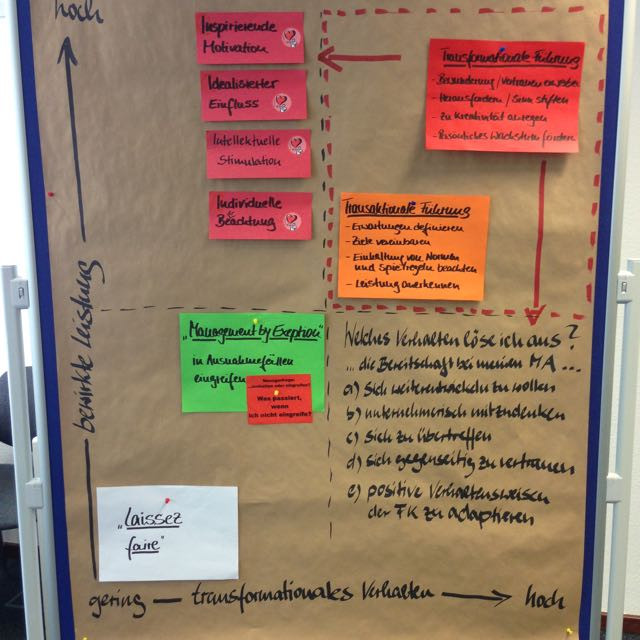 hoch
Inspirierende
Motivation
Idealisierter
Einfluss
Intellektuelle
Stimulation
Individuelle
Beachtung
Transformationale Führung
- Bewunderung / Vertrauen erwerben
- Herausfordern / Sinn stiften
- zu Kreativität anregen
- Persönliches Wachstum fördern
Transaktionale Führung
- Erwartungen definieren
- Ziele vereinbaren
- Einhaltung von Normen
und Spielregeln beachten
- Leistung anerkennen
bewirkte Leistung
"Management by Exeption"
in Ausnahmefällen
eingreifen
oder eingreifen?
Was passiert,
wenn
ich nicht eingreife?
Welches Verhalten löse ich aus?
... die Bereitschaft bei meinen MA ...
a) sich weiterentwickeln zu wollen
b) unternehmerisch mitzudenken
c) sich zu übertreffen
d) sich gegenseitig zu vertrauen
e) positive Verhaltensweisen
der FK zu adaptieren
"Laissez
faire"
gering — transformationales Verhalten → hoch